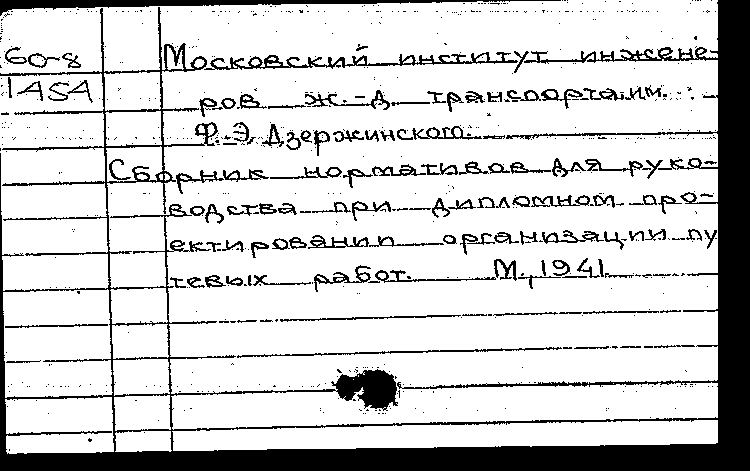 60-8 Московский институт инжене-
1454 ров ж.-д. транспорта им.
Ф.Э. Дзержинского.
Сборник нормативов для руко-
водства при дипломном про-
ектировании организации пу
тевых работ. М., 1941.